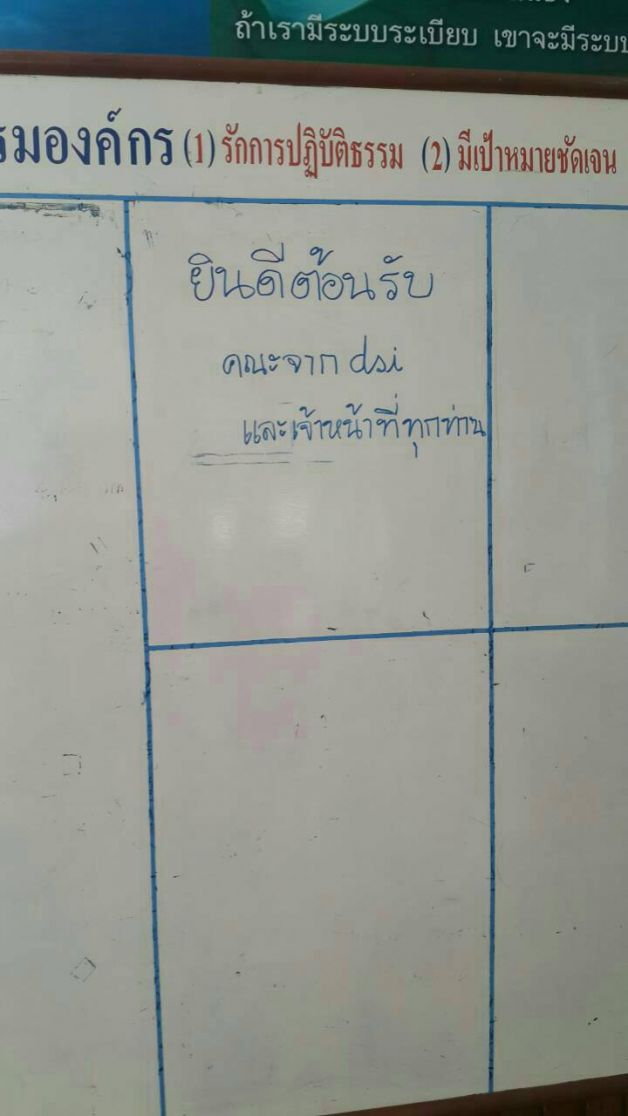 ถ้าเรามีระบบระเบียบ เขาจะมีระบบ
รมองค์กร (1) รักการปฏิบัติธรรม (2) มีเป้าหมายชัดเจน
ยินดีต้อนรับ
คณะจาก dsi
และเจ้าหน้าที่ทุกท่าน